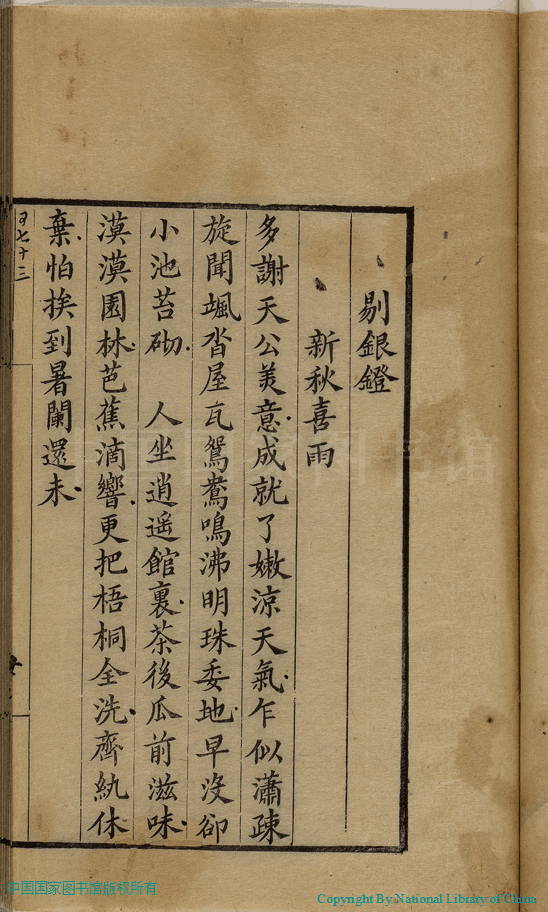 剔銀鐙
新秋喜雨
多謝天公美意成就了嫩涼天氣乍似瀟疎
旋聞颯沓屋瓦鴛鴦鳴沸明珠委地早沒卻
小池苔砌　人坐逍遥館裏茶後瓜前滋味
漠漠園林芭蕉滴響更把梧桐全洗齊紈休
棄怕挨到暑闌還未
七十三
中国国家图书馆版权所有
Copyright By National Library of China